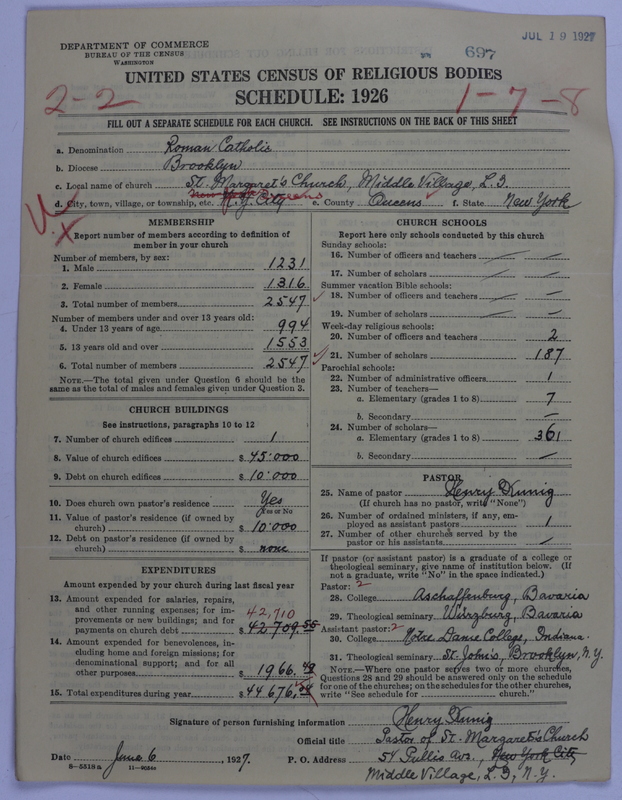 JUL 19 1927
697
DEPARTMENT OF COMMERCE
BUREAU OF THE CENSUS
WASHINGTON
UNITED STATES CENSUS OF RELIGIOUS BODIES
SCHEDULE: 1926
2-2
1-7-8
FILL OUT A SEPARATE SCHEDULE FOR EACH CHURCH. SEE INSTRUCTIONS ON THE BACK OF THIS SHEET
a. Denomination Roman Catholic
b. Diocese Brooklyn
c. Local name of church St. Margaret's Church, Middle Village, L. I.
d. City, town, village, or township, etc. N.Y. City e. County Queens f. State New York
MEMBERSHIP
Report number of members according to definition of
member in your church
Number of members, by sex:
1. Male 1231
2. Female 1316
3. Total number of members 2547
Number of members under and over 13 years old:
4. Under 13 years of age 994
5. 13 years old and over 1553
6. Total number of members 2547
NOTE.—The total given under Question 6 should be the
same as the total of males and females given under Question 3.
CHURCH BUILDINGS
See instructions, paragraphs 10 to 12
7. Number of church edifices 1
8. Value of church edifices $ 45.000
9. Debt on church edifices $ 10.000
10. Does church own pastor's residence Yes
Yes or No
11. Value of pastor's residence (if owned by
church) $ 10.000
12. Debt on pastor's residence (if owned by
church) $ none
EXPENDITURES
Amount expended by your church during last fiscal year
13. Amount expended for salaries, repairs,
and other running expenses; for im-
provements or new buildings; and for
payments on church debt $ 42,709.55
42,710
14. Amount expended for benevolences, in-
cluding home and foreign missions; for
denominational support; and for all
other purposes $ 1966.49
15. Total expenditures during year $ 44676.04
CHURCH SCHOOLS
Report here only schools conducted by this church
Sunday schools:
16. Number of officers and teachers —
17. Number of scholars —
Summer vacation Bible schools:
18. Number of officers and teachers —
19. Number of scholars —
Week-day religious schools:
20. Number of officers and teachers 2
21. Number of scholars 187
Parochial schools:
22. Number of administrative officers 1
23. Number of teachers—
a. Elementary (grades 1 to 8) 7
b. Secondary —
24. Number of scholars—
a. Elementary (grades 1 to 8) 361
b. Secondary —
PASTOR
25. Name of pastor Henry
(If church has no pastor, write "None")
26. Number of ordained ministers, if any, em-
ployed as assistant pastors 1
27. Number of other churches served by the
pastor or his assistants —
If pastor (or assistant pastor) is a graduate of a college or
theological seminary, give name of institution below. (If
not a graduate, write "No" in the space indicated.)
Pastor: 2
28. College Aschaffenburg, Bavaria
29. Theological seminary Würzburg, Bavaria
Assistant pastor: 2
30. College Notre Dame College, Indiana.
31. Theological seminary St. John's, Brooklyn, N.Y.
NOTE.—Where one pastor serves two or more churches,
Questions 28 and 29 should be answered only on the schedule
for one of the churches; on the schedules for the other churches,
write "See schedule for church."
Signature of person furnishing information Henry
Official title Pastor of St. Margaret's Church
Date June 6, 1927. P. O. Address Ave., New York City
8-5518a 11-9684
Middle Village, L. I, N.Y.